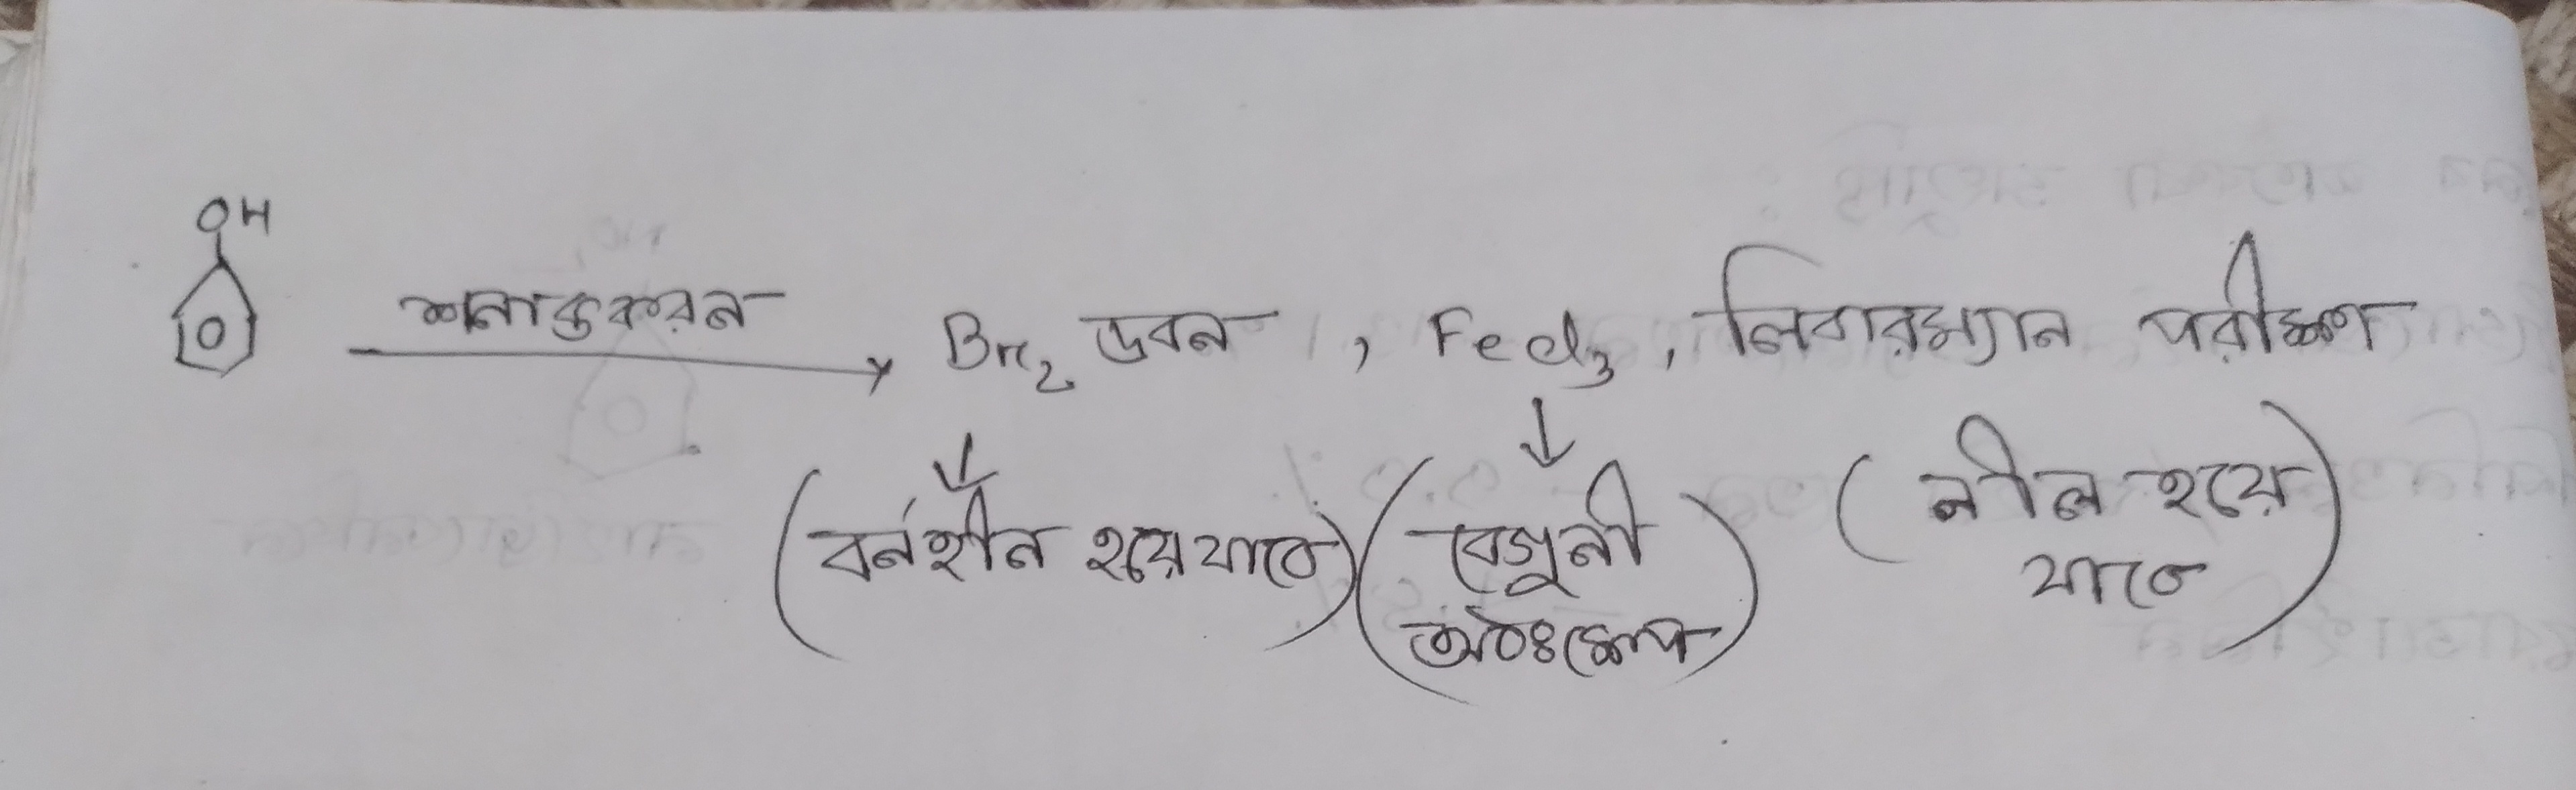 OH
শনাক্তকরন Br₂ দ্রবন , FeCl₃ , লিবারম্যান পরীক্ষা
(বর্নহীন হয়ে যাবে) (বেগুনী অধঃক্ষেপ) (নীল হয়ে যাবে)